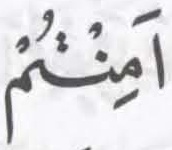 اَمِنْتُمْ